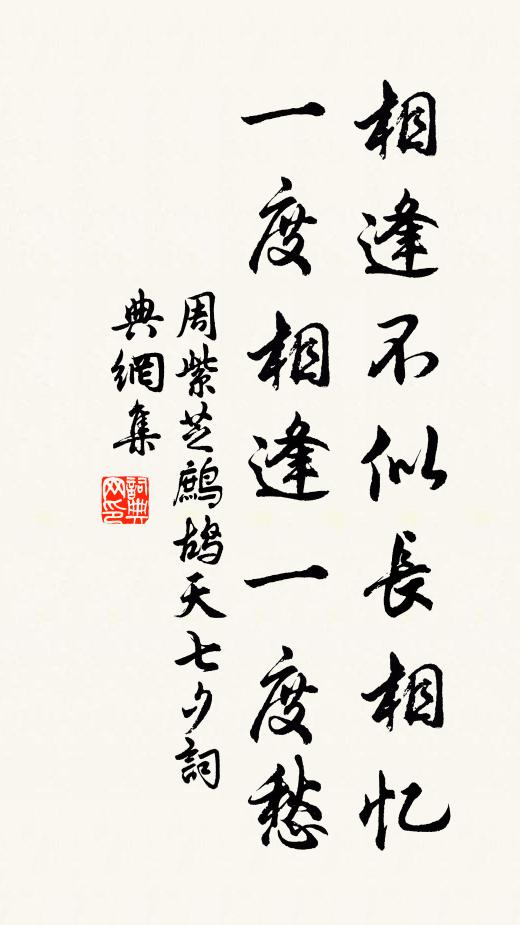 相逢不似長相忆
一度相逢一度愁
周紫芝鷓鴣天七夕詞
典網集
詞典网印